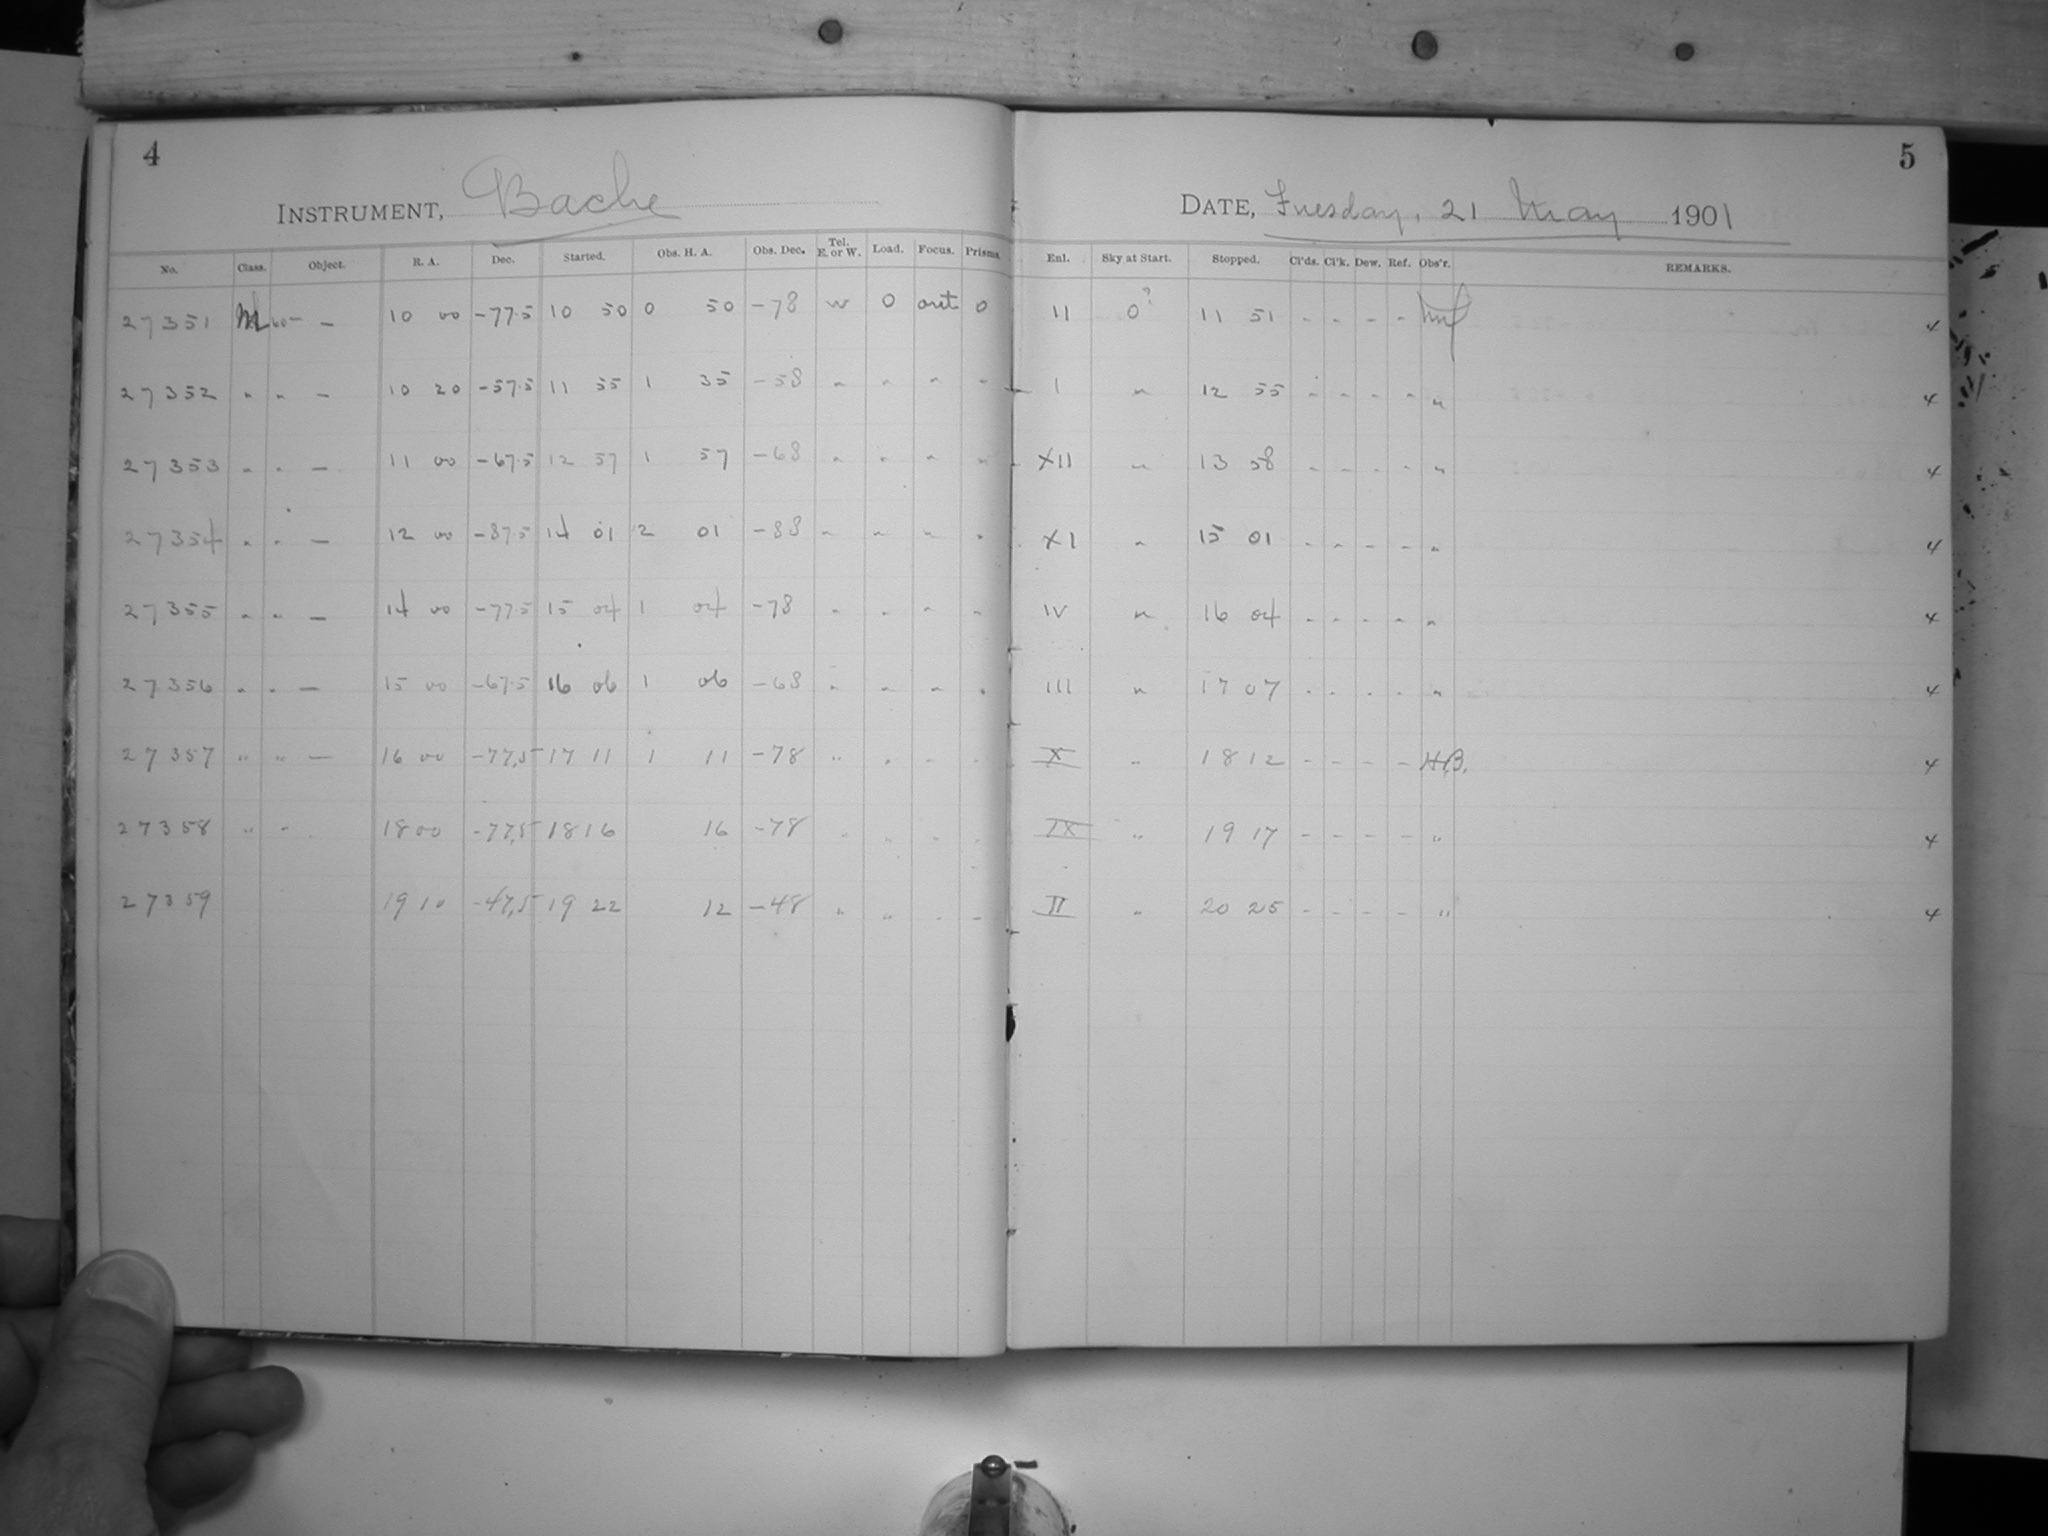 4
5
INSTRUMENT, Bache
DATE, Tuesday, 21 May 1901
No. Class. Object. R. A. Dec. Started. Obs. H. A. Obs. Dec. Tel. E. or W. Load. Focus. Prisms. Enl. Sky at Start. Stopped. Cl'ds. Cl'k. Dew. Ref. Obs'r. REMARKS.
27351 60m — 10 00 -77.5 10 50 0 50 -78 w 0 out 0 II 0? 11 51 - - - - 4
27352 " " — 10 20 -57.5 11 55 1 35 -58 " " " " I " 12 55 - - - - " 4
27353 " " — 11 00 -67.5 12 57 1 57 -68 " " " " XII " 13 58 - - - - " 4
27354 " " — 12 00 -87.5 14 01 2 01 -88 " " " " XI " 15 01 - - - - " 4
27355 " " — 14 00 -77.5 15 04 1 04 -78 " " " " IV " 16 04 - - - - " 4
27356 " " — 15 00 -67.5 16 06 1 06 -68 " " " " III " 17 07 - - - - " 4
27357 " " — 16 00 -77.5 17 11 1 11 -78 " " " " X " 18 12 - - - - H.B. 4
27358 " " 18 00 -77.5 18 16 16 -78 " " " " IX " 19 17 - - - - " 4
27359 19 10 -47.5 19 22 12 -48 " " " " II " 20 25 - - - - " 4